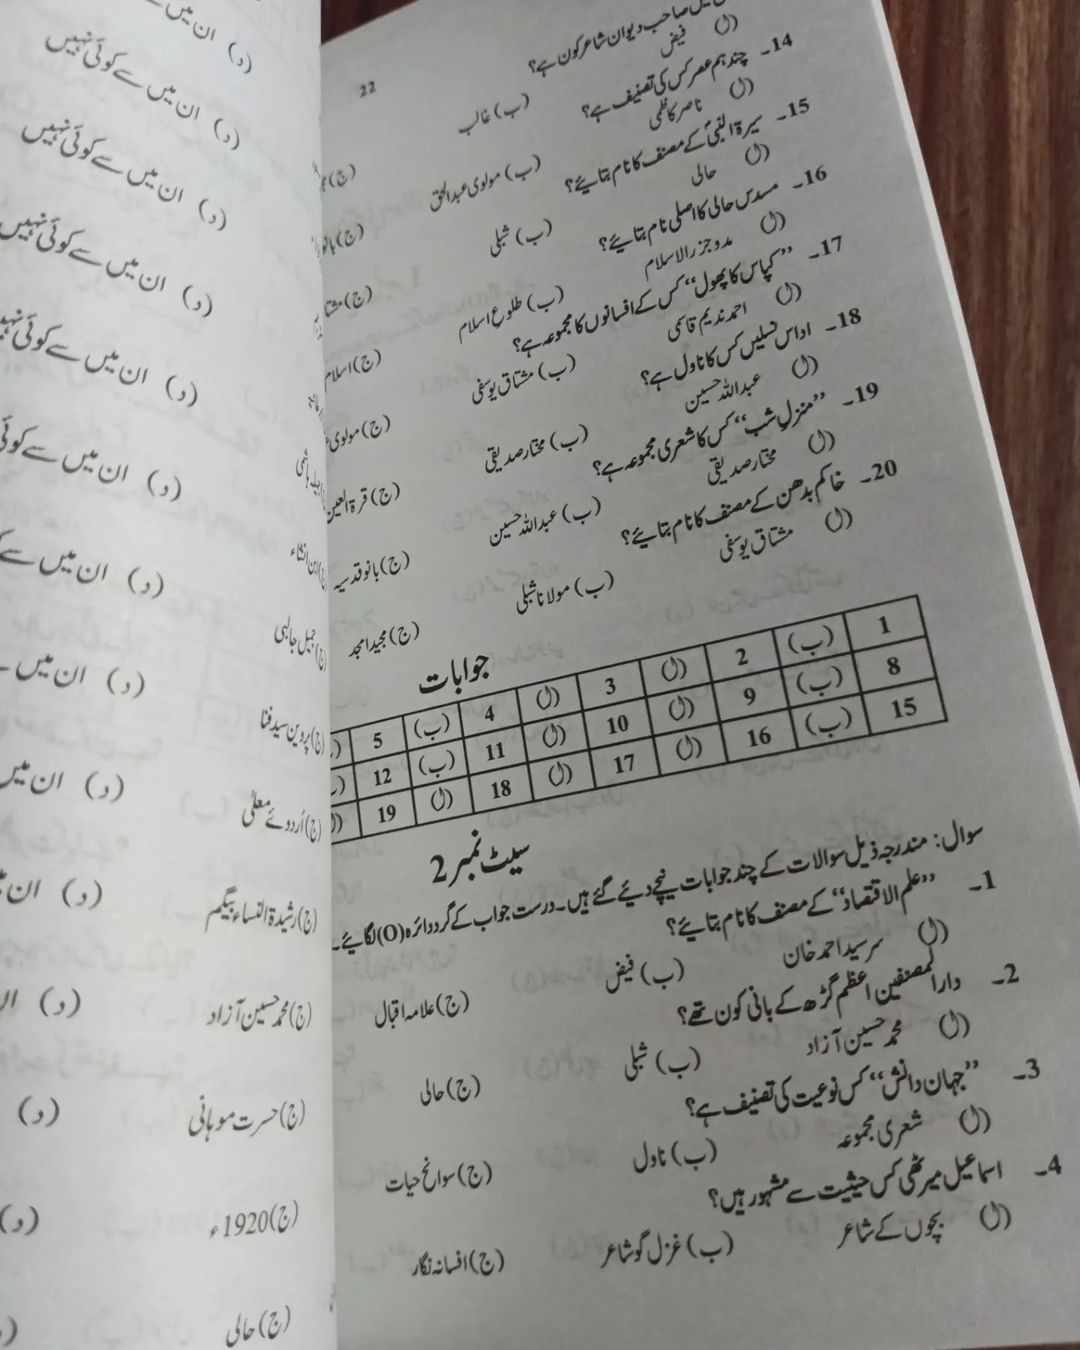 22
صاحب دیوان شاعر کون ہے؟
(ا) فیض (ب) غالب (ج)
14۔ چند ہم عصر کس کی تصنیف ہے؟
(ا) ناصر کاظمی (ب) مولوی عبدالحق (ج) بانو
15۔ سیرۃ النبیؐ کے مصنف کا نام بتایئے؟
(ا) حالی (ب) شبلی (ج)
16۔ مسدس حالی کا اصلی نام بتایئے؟
(ا) مدوجزرالاسلام (ب) طلوعِ اسلام (ج) اسلام
17۔ ’’کپاس کا پھول‘‘ کس کے افسانوں کا مجموعہ ہے؟
(ا) احمد ندیم قاسمی (ب) مشتاق یوسفی (ج) مولوی
18۔ اداس نسلیں کس کا ناول ہے؟
(ا) عبداللہ حسین (ب) مختار صدیقی (ج) قرۃ العین
19۔ ’’منزلِ شب‘‘ کس کا شعری مجموعہ ہے؟
(ا) مختار صدیقی (ب) عبداللہ حسین (ج) بانو قدسیہ
20۔ خاکم بدھن کے مصنف کا نام بتایئے؟
(ا) مشتاق یوسفی (ب) مولانا شبلی (ج) مجید امجد
جوابات
1 (ب) 2 (ا) 3 (ا) 4 (ب) 5
8 (ب) 9 (ا) 10 (ا) 11 (ب) 12
15 (ب) 16 (ا) 17 (ا) 18 (ا) 19
سیٹ نمبر 2
سوال: مندرجہ ذیل سوالات کے چند جوابات نیچے دیئے گئے ہیں۔ درست جواب کے گرد دائرہ (O) لگایئے۔
1۔ ’’علم الاقتصاد‘‘ کے مصنف کا نام بتایئے؟
(ا) سرسید احمد خان (ب) فیض (ج) علامہ اقبال
2۔ دارالمصنفین اعظم گڑھ کے بانی کون تھے؟
(ا) محمد حسین آزاد (ب) شبلی (ج) حالی
3۔ ’’جہان دانش‘‘ کس نوعیت کی تصنیف ہے؟
(ا) شعری مجموعہ (ب) ناول (ج) سوانح حیات
4۔ اسماعیل میرٹھی کس حیثیت سے مشہور ہیں؟
(ا) بچوں کے شاعر (ب) غزل گو شاعر (ج) افسانہ نگار
(د) ان میں
(د) ان میں سے کوئی نہیں
(د) ان میں سے کوئی نہیں
(د) ان میں سے کوئی نہیں
(د) ان میں سے کوئی
(د) ان میں سے کوئی
(د) ان میں سے
(ج) جمیل جالبی (د) ان میں
(ج) پروین سید فنا (د) ان میں
(ج) اُردوئے معلیٰ (د)
(ج) رشیدۃ النساء بیگم (د)
(ج) محمد حسین آزاد (د)
(ج) حسرت موہانی (د)
(ج) 1920ء (د)
(ج) حالی